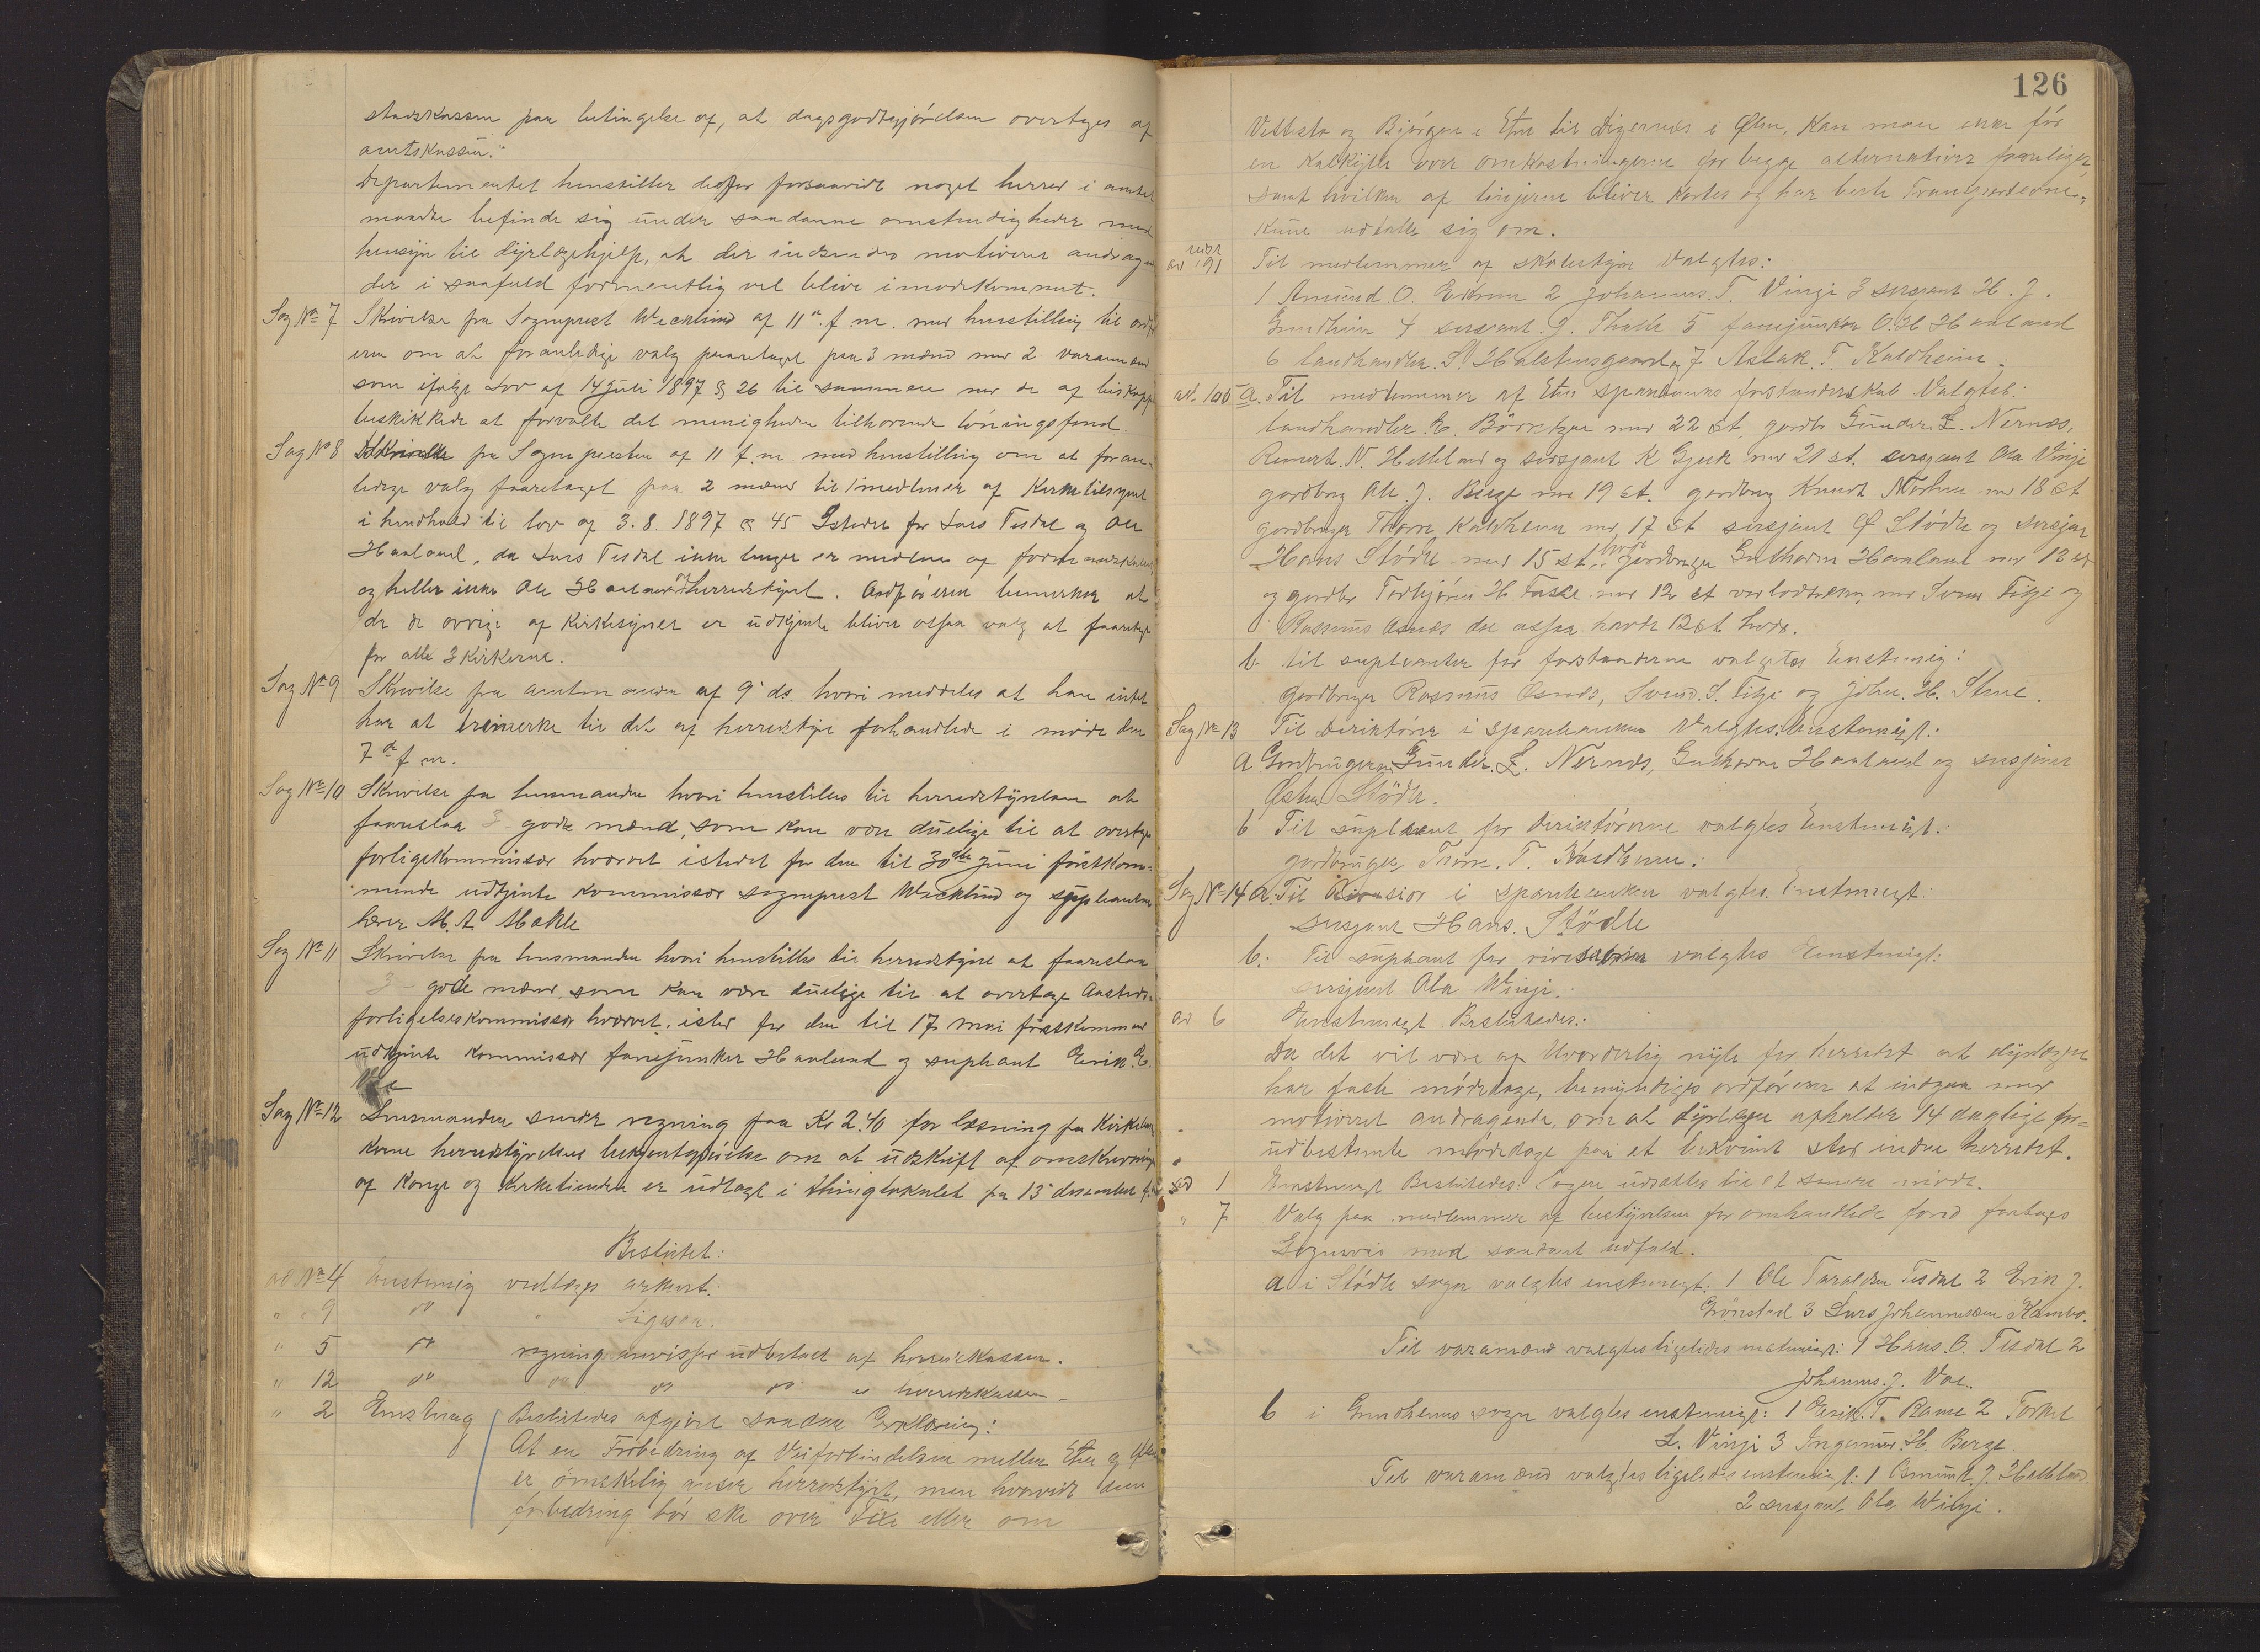 statskassen paa betingelse af, at dagsgodtgjørelsen overtages af
amtskassen."
Departementet henstiller derfor forsaavidt noget herred i amtet
maatte befinde sig under saadanne omstendigheder med
hensyn til dyrlægehjelp, at der indsendes motiveret andragen
der i saafald formentlig vil blive imødekommet.
Sag No 7 Skrivelse fra Sogneprest Wecklund af 11te f. m. med henstilling til ordfø
eren om at foranledige valg foretaget paa 3 mænd med 2 varamænd
som ifølge Lov af 14 juli 1897 § 26 til sammen med de af biskop
beskikkede at forvalte det menigheden tilhørende lønningsfond.
Sag No 8 Skrivelse fra Sognepresten af 11 f. m. med henstilling om at foran-
ledige valg foretaget paa 2 mænd til medlemer af Kirketilsynet
i henhold til lov af 3. 8. 1897 § 45 Istedet for Lars Tesdal og Ole
Haaland, da Lars Tesdal ikke lenger er medlem af formandskabet
og heller ikke Ole Haaland af herredstyret. Ordføreren bemerker at
da de øvrige af Kirkesynet er udtjente bliver ossaa valg at foretage
for alle 3 Kirkerne.
Sag No 9 Skrivelse fra amtmanden af 9de ds. hvori meddeles at han intet
har at bemerke til det af herredstyre forhandlede i møde den
7de f. m.
Sag No 10 Skrivelse fra lensmanden hvori henstilles til herredstyrelsen at
foreslaa 3 gode mænd, som kan være duelige til at overtage
forligskommissær hvervet istedet for den til 30de Juni førstkom-
mende udtjente Kommissær sogneprest Wecklund og supleanten
lærer M. A. Mæhle
Sag No 11 Skrivelse fra lensmanden hvori henstilles til herredstyret at foreslaa
3 gode mænd, som kan være duelige til at overtage
forligelseskommissær hvervet, isted for den til 17 mai førstkommen
udtjente Kommissær fanejunker Haaland og supleant Erik E.
Vae
Sag No 12 Lensmanden sender regning paa Kr 2.40 for læsning fra Kirke
herredstyrelsens bekjentgjørelse om at udskrift af omskrivning
af Konge og Kirketienden er udlagt i thinglokalet fra 13de desember f.
Besluttet:
ad No 4 Enstemig vedtages
" 9 " "
" 5 " regning anvises udbetalt af herredskassen.
" 12 " " " " " herredskassen
" 2 Enstemig Besluttedes afgivet saadan Erklæring:
At en Forbedring af Veiforbindelsen mellem Etne og Ølen
er ømskelig anser herredstyret, men hvorvidt denne
forbedring bør ske over Fixe eller om
126
Vettsta og Bjørgen i Etne til Digernes i Ølen, Kan man ikke før
en Kalkyle over omkostningerne for begge alternativer foreligger,
samt hvilken af linjerne bliver Kortes og har beste Transportevne,
Kune udtale sig om.
Til medlemmer af skolestyre Valgtes:
1 Amund O. Ekrene 2 Johannes T. Vinje 3 sersjant H. J.
Grindheim 4 sersjant J. Thask 5 fanejunker O. H. Haaland
6 landhandler S. Halstensgaard 7 Aslak T. Kaldheim.
ad. 100 a. Til medlemmer af Etne sparebanks forstanderskab Valgtes:
landhandler E. Børretzen med 22 st, gardbr Gunder L. Nernæs,
Reinert N. Helleland og sersjant K Gjerde med 21 st. sersjant Ola Vinje
gardbrug Ole J. Berge med 19 st. gardbrug Knudt med 18 st
gardbruger Thore Kaldheim med 17 st sersjant Ø Stødle og sersjant
Hans Stødle med 15 st. hver gardbruger Guthorm Haaland med 13 st
og gardbr Torbjørn H. Taske med 12 st ved lodtrækn. med Svend Fitje og
Rasmus Osnes der ossaa havde 12 st hver.
b. til supleanter for forstanderne valgtes Enstemig:
Gardbruger Rasmus Osnæs, Svend S. Fitje og John H. Stene.
Sag No 13 Til Direktører i sparebanken Valgtes Enstemigt:
a Gardbrugerne Gunder L. Nernæs, Guthorm Haaland og sersjant
Østen Stødle.
b Til supleant for direktørerne valgtes Enstemigt:
gardbruger Thore T. Kaldheim.
Sag No 14 a. Til Revisior i sparebanken valgtes Enstemigt:
Sersjant Hans Stødle
b. Til supleant for valgtes Enstemigt:
sersjant Ola Winje.
ad 6 Enstemigt Besluttedes:
Da det vil være af Uvurderlig nytte for herredet at dyrlægen
har faste mødedage, bemyndiges ordføreren at indgaa med
motiveret andragende, om at dyrlægen afholder 14 daglige for-
udbestemte mødedage paa et bekvemt sted inden herredet.
ad 1 Enstemigt Besluttedes: sagen udsættes til et senere møde.
" 7 Valg paa medlemmer af bestyrelsen for omhandlede fond foretages
Sognevis med saadant udfald.
a i Stødle sogn valgtes enstemigt: 1 Ole Taraldsen Tesdal 2 Erik J.
Grønstad 3 Lars Johannessen Kambe.
Til varamænd valgtes ligeledes enstemigt: 1 Hans O. Tesdal 2
Johannes J. Vae.
b i Grindheims sogn valgtes enstemigt: 1 Erik T. Rame 2 Torkel
L. Vinje 3 Ingemund H. Berge.
Til varamænd valgtes ligeledes enstemigt: 1 Osmund J. Helleland
2 sersjant Ola Winje.